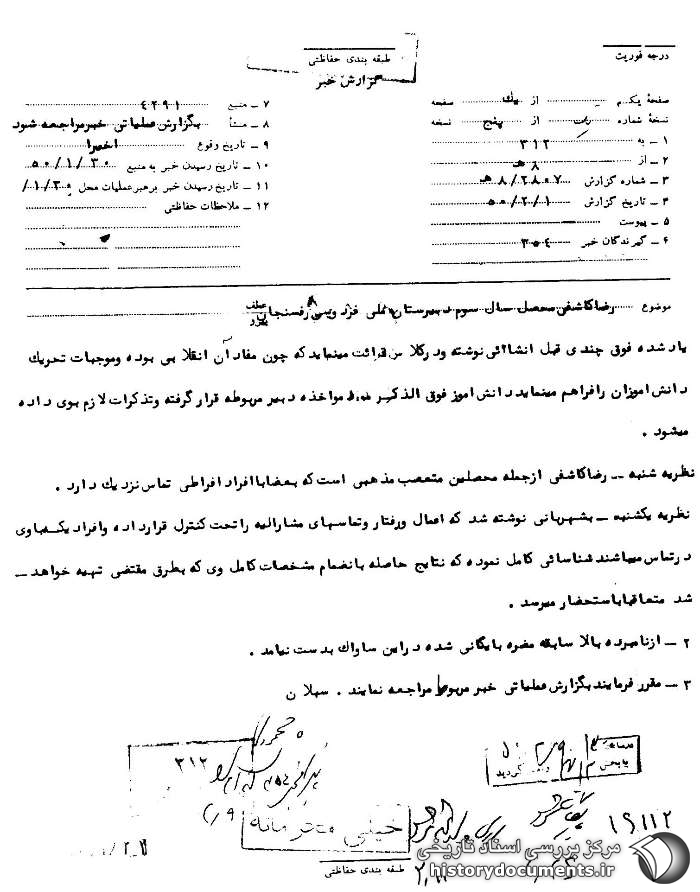 درجه فوریت
طبقه بندی حفاظتی
گزارش خبر
صفحهٔ یکم از یک صفحه
نسخهٔ شماره یک از پنج نسخه
۱ ـ به ۳۱۲
۲ ـ از ۸ هـ
۳ ـ شماره گزارش ۲۸۰۷/۸ هـ
۴ ـ تاریخ گزارش ۵۰/۲/۱
۵ ـ پیوست
۶ ـ گیرندگان خبر ۳۵۴
۷ ـ منبع ۴۲۹۱
۸ ـ منشأ بگزارش عملیاتی خبر مراجعه شود
۹ ـ تاریخ وقوع اخیرا
۱۰ ـ تاریخ رسیدن خبر به منبع ۵۰/۱/۳۰
۱۱ ـ تاریخ رسیدن خبر برهبر عملیات محل ۱/۳۰/
۱۲ ـ ملاحظات حفاظتی
موضوع رضا کاشفی محصل سال سوم دبیرستان ملی فردوسی رفسنجان
عطف
یاد شده فوق چندی قبل انشائی نوشته و در کلاس قرائت مینماید که چون مفاد آن انقلابی بوده و موجبات تحریك
دانش آموزان را فراهم مینماید دانش آموز فوق الذکر مورد مواخذه دبیر مربوطه قرار گرفته و تذکرات لازم بوی داده
میشود .
نظریه شنبه ـ رضا کاشفی از جمله محصلین متعصب مذهبی است که بعضا با افراد افراطی تماس نزدیك دارد .
نظریه یکشنبه ـ بشهربانی نوشته شد که اعمال و رفتار و تماسهای مشارالیه را تحت کنترل قرار داده و افراد یکه با وی
در تماس میباشند شناسائی کامل نموده که نتایج حاصله بانضمام مشخصات کامل وی که بطرق مقتضی تهیه خواهد ـ
شد متعاقبا باستحضار میرسد .
۲ ـ از نامبرده بالا سابقه مضره بایگانی شده در این ساواك بدست نیامد .
۳ ـ مقرر فرمایند بگزارش عملیاتی خبر مربوط مراجعه نمایند . سبلان
۳۱۲
خیلی محرمانه
۱۹۱۱۲
طبقه بندی حفاظتی
مرکز بررسی اسناد تاریخی
historydocuments.ir